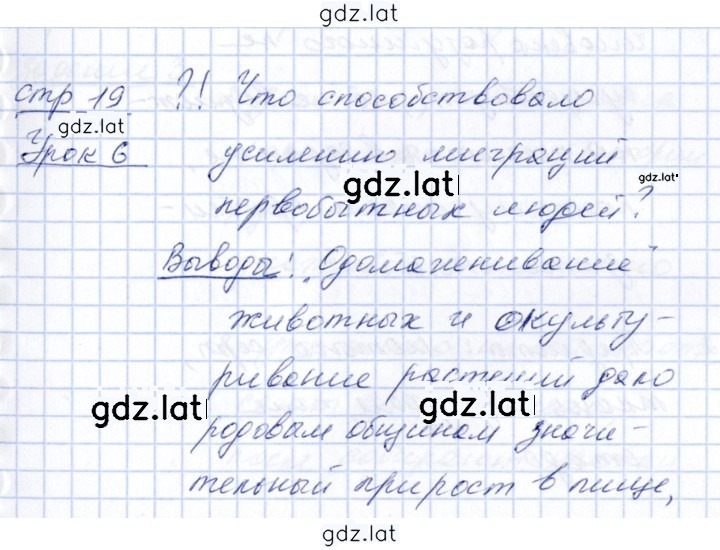 gdz.lat
стр 19 ?! Что способствовало
gdz.lat
Урок 6 усилению миграций
gdz.lat gdz.lat
первобытных людей?
Выводы: „Одомашнивание"
животных и окульту-
ривание растений дало
gdz.lat gdz.lat
родовым общинам значи-
тельный прирост в пище,
gdz.lat